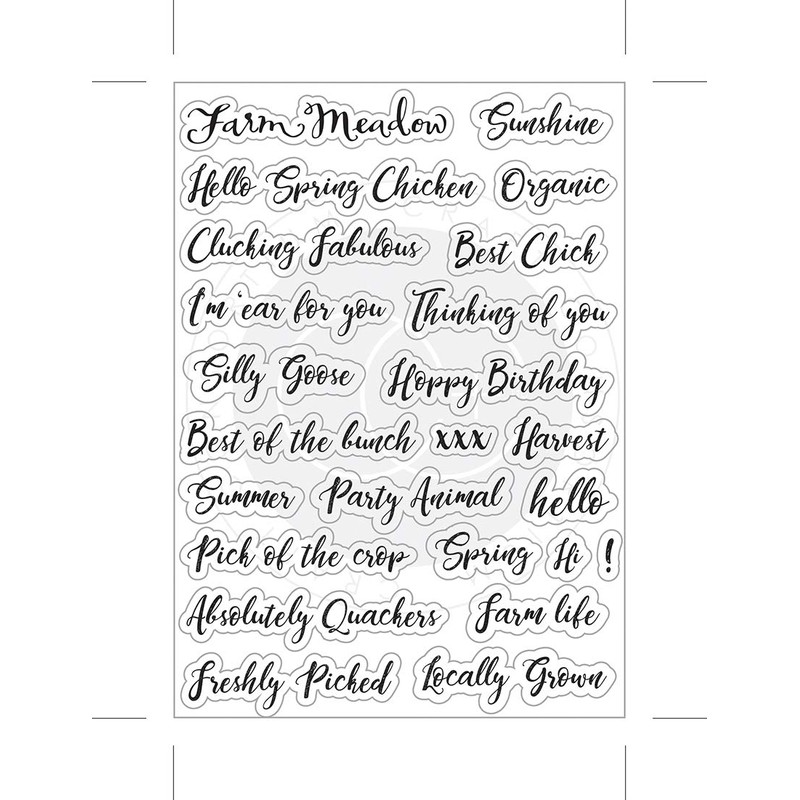 Farm Meadow Sunshine
Hello Spring Chicken Organic
Clucking Fabulous Best Chick
I'm 'ear for you Thinking of you
Silly Goose Hoppy Birthday
Best of the bunch xxx Harvest
Summer Party Animal hello
Pick of the crop Spring Hi !
Absolutely Quackers Farm life
Freshly Picked Locally Grown